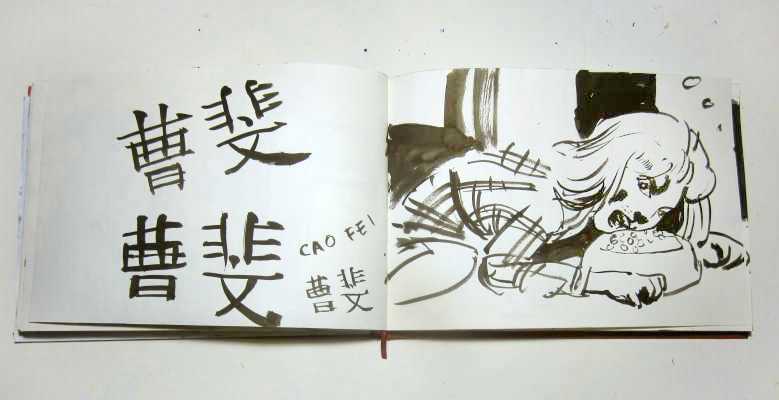 曹斐
曹斐
CAO FEI
曹斐